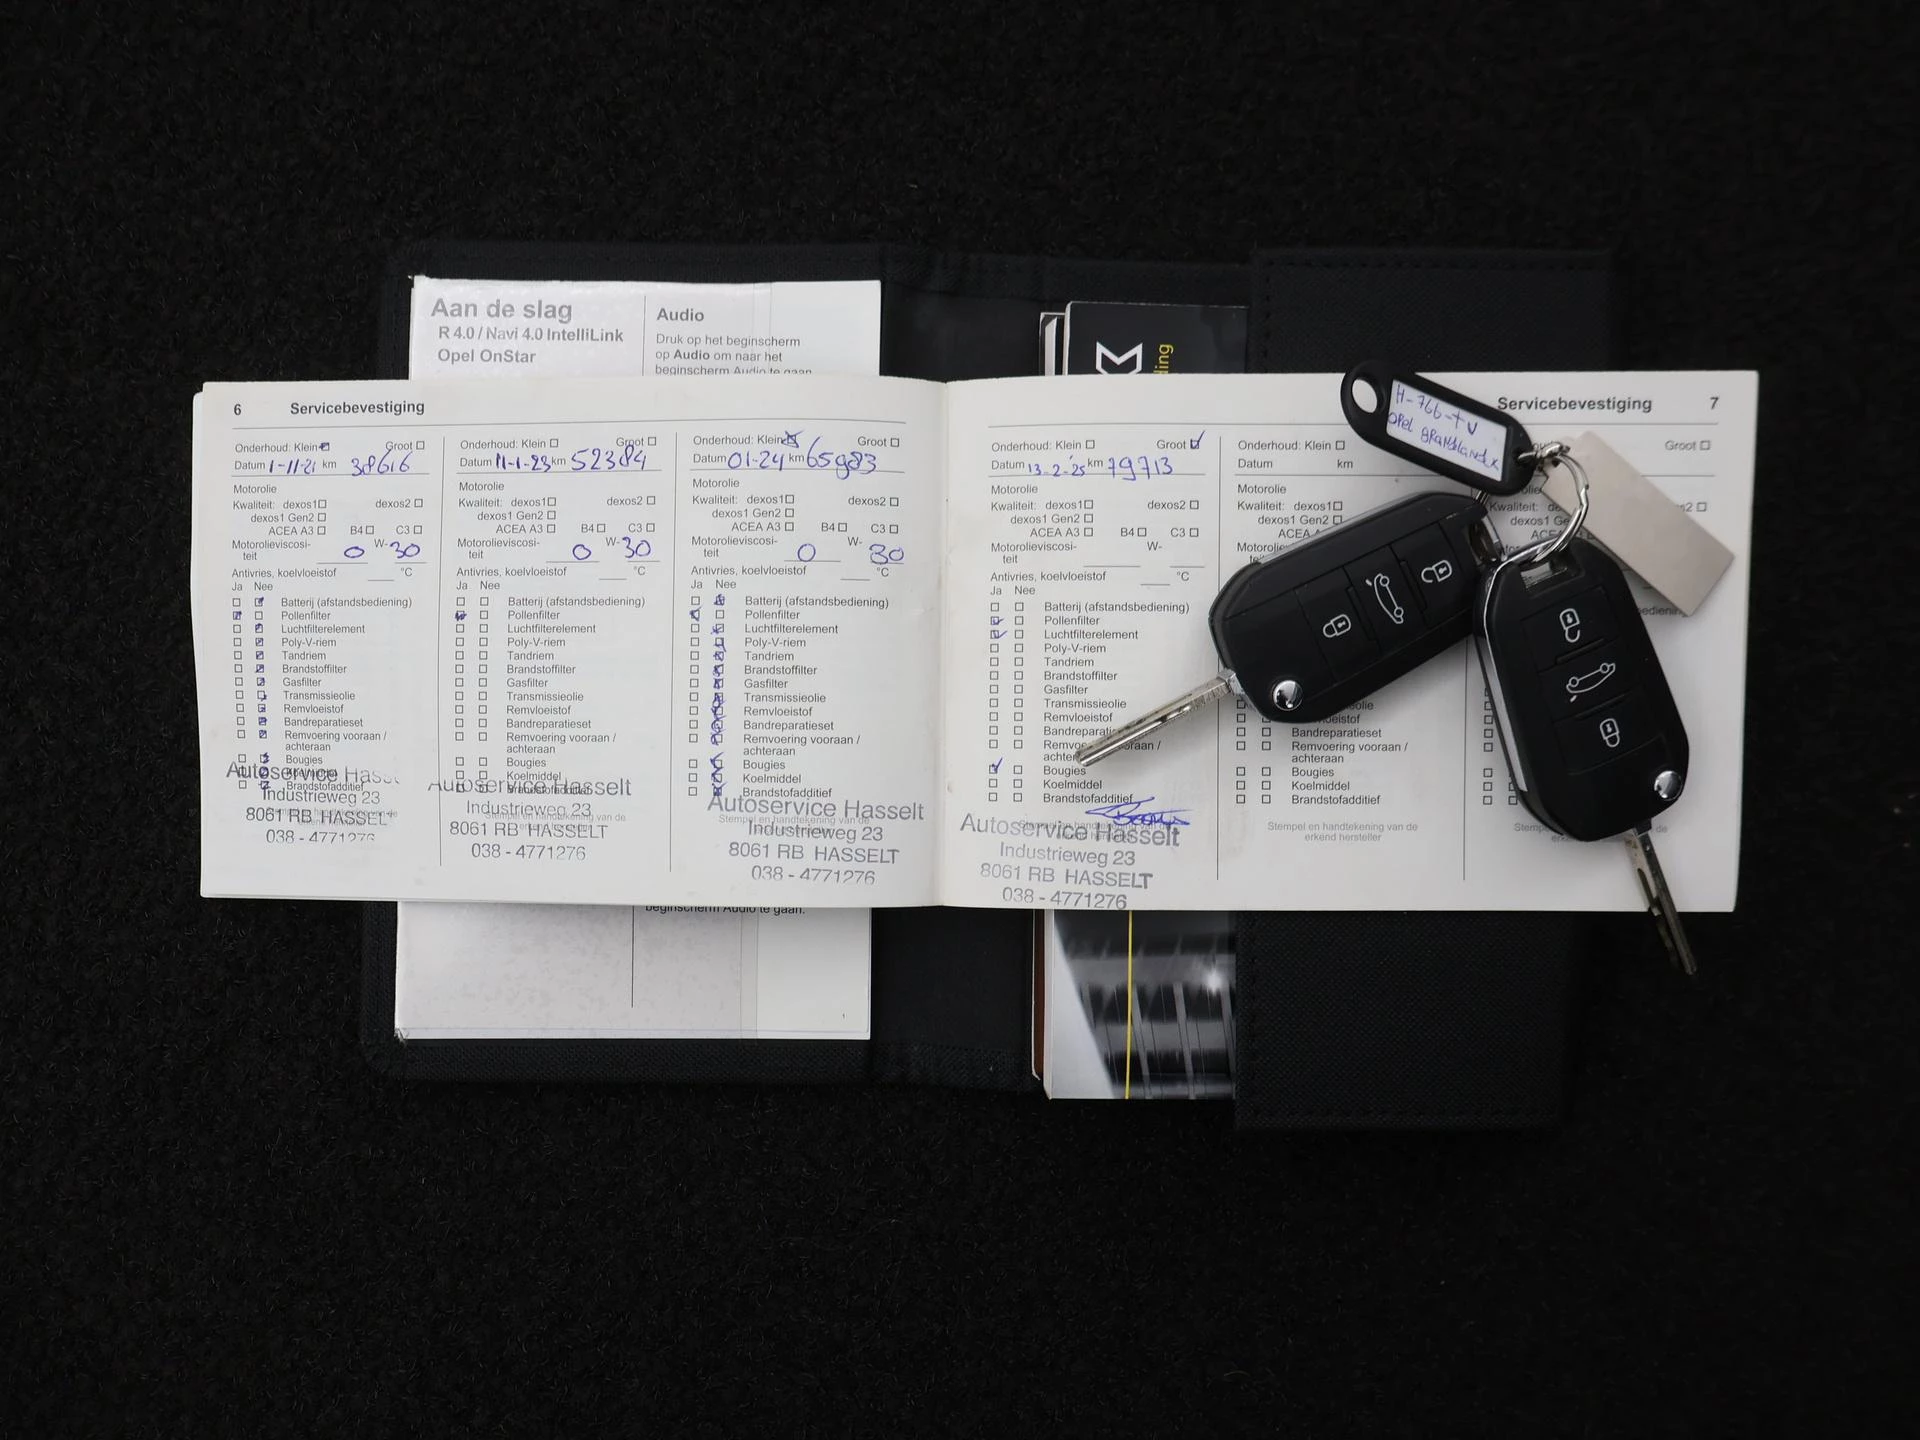 Aan de slag
R 4.0 / Navi 4.0 IntelliLink
Opel OnStar
Audio
Druk op het beginscherm
op Audio om naar het
beginscherm Audio te gaan.
ding
6 Servicebevestiging
Onderhoud: Klein Groot
Datum 1-11-21 km 38616
Motorolie
Kwaliteit: dexos1 dexos2
dexos1 Gen2
ACEA A3 B4 C3
Motorolieviscosi-
teit 0 W- 30
Antivries, koelvloeistof °C
Ja Nee
Batterij (afstandsbediening)
Pollenfilter
Luchtfilterelement
Poly-V-riem
Tandriem
Brandstoffilter
Gasfilter
Transmissieolie
Remvloeistof
Bandreparatieset
Remvoering vooraan /
achteraan
Bougies
Koelmiddel
Brandstofadditief
Autoservice Hasselt
Industrieweg 23
8061 RB HASSELT
038 - 4771276
Onderhoud: Klein Groot
Datum 11-1-23 km 52384
Motorolie
Kwaliteit: dexos1 dexos2
dexos1 Gen2
ACEA A3 B4 C3
Motorolieviscosi-
teit 0 W- 30
Antivries, koelvloeistof °C
Ja Nee
Batterij (afstandsbediening)
Pollenfilter
Luchtfilterelement
Poly-V-riem
Tandriem
Brandstoffilter
Gasfilter
Transmissieolie
Remvloeistof
Bandreparatieset
Remvoering vooraan /
achteraan
Bougies
Koelmiddel
Brandstofadditief
Autoservice Hasselt
Industrieweg 23
8061 RB HASSELT
038 - 4771276
Onderhoud: Klein Groot
Datum 01-24 km 65983
Motorolie
Kwaliteit: dexos1 dexos2
dexos1 Gen2
ACEA A3 B4 C3
Motorolieviscosi-
teit 0 W- 30
Antivries, koelvloeistof °C
Ja Nee
Batterij (afstandsbediening)
Pollenfilter
Luchtfilterelement
Poly-V-riem
Tandriem
Brandstoffilter
Gasfilter
Transmissieolie
Remvloeistof
Bandreparatieset
Remvoering vooraan /
achteraan
Bougies
Koelmiddel
Brandstofadditief
Autoservice Hasselt
Industrieweg 23
8061 RB HASSELT
038 - 4771276
Servicebevestiging 7
Onderhoud: Klein Groot
Datum 13-2-25 km 79713
Motorolie
Kwaliteit: dexos1 dexos2
dexos1 Gen2
ACEA A3 B4 C3
Motorolieviscosi-
teit W-
Antivries, koelvloeistof °C
Ja Nee
Batterij (afstandsbediening)
Pollenfilter
Luchtfilterelement
Poly-V-riem
Tandriem
Brandstoffilter
Gasfilter
Transmissieolie
Remvloeistof
Bandreparatieset
Remvoering vooraan /
achteraan
Bougies
Koelmiddel
Brandstofadditief
Autoservice Hasselt
Industrieweg 23
8061 RB HASSELT
038 - 4771276
Onderhoud: Klein
Datum km
Motorolie
Kwaliteit: dexos1
dexos1 Gen2
ACEA
Bandreparatieset
Remvoering vooraan /
achteraan
Bougies
Koelmiddel
Brandstofadditief
Stempel en handtekening van de
erkend hersteller
Groot
H-766-TV
Opel GRANDLAND X
beginscherm Audio te gaan.